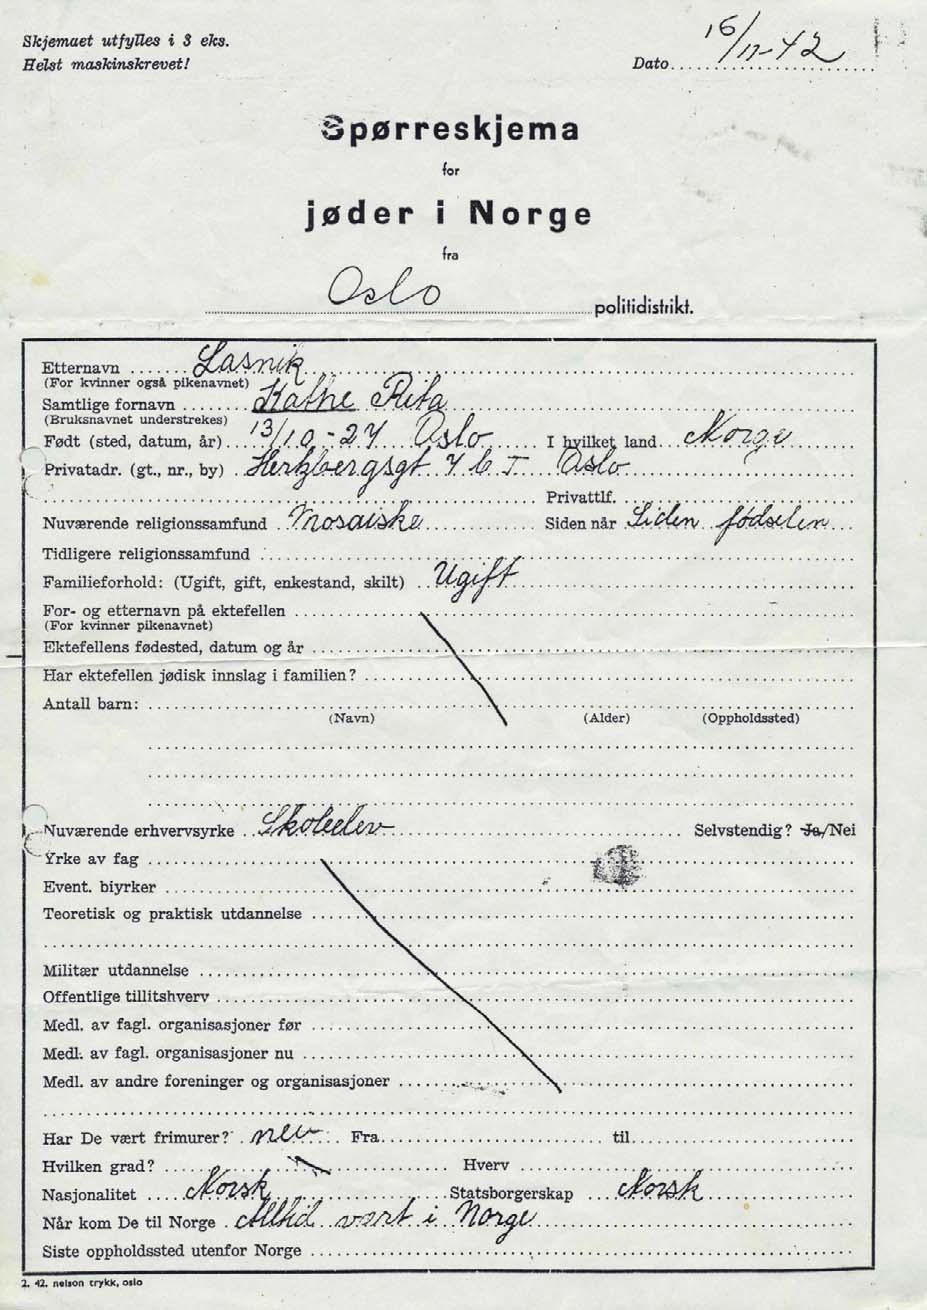 Skjemaet utfylles i 3 eks.
Helst maskinskrevet!
Dato 16/11-42
Spørreskjema
for
jøder i Norge
fra
Oslo politidistrikt.
Etternavn Lasnik
(For kvinner også pikenavnet)
Samtlige fornavn Kathe Rita
(Bruksnavnet understrekes)
Født (sted, datum, år) 13/10-27 Oslo I hvilket land Norge
Privatadr. (gt., nr., by) Hertzbergsgt 7 b. I Oslo
Privattlf.
Nuværende religionssamfund Mosaiske Siden når Siden fødselen
Tidligere religionssamfund
Familieforhold: (Ugift, gift, enkestand, skilt) Ugift
For- og etternavn på ektefellen
(For kvinner pikenavnet)
Ektefellens fødested, datum og år
Har ektefellen jødisk innslag i familien?
Antall barn:
(Navn) (Alder) (Oppholdssted)
Nuværende erhvervsyrke Skoleelev Selvstendig? Ja/Nei
Yrke av fag
Event. biyrker
Teoretisk og praktisk utdannelse
Militær utdannelse
Offentlige tillitshverv
Medl. av fagl. organisasjoner før
Medl. av fagl. organisasjoner nu
Medl. av andre foreninger og organisasjoner
Har De vært frimurer? nei Fra til
Hvilken grad? Hverv
Nasjonalitet Norsk Statsborgerskap Norsk
Når kom De til Norge Alltid vært i Norge
Siste oppholdssted utenfor Norge
2. 42. nelson trykk, oslo